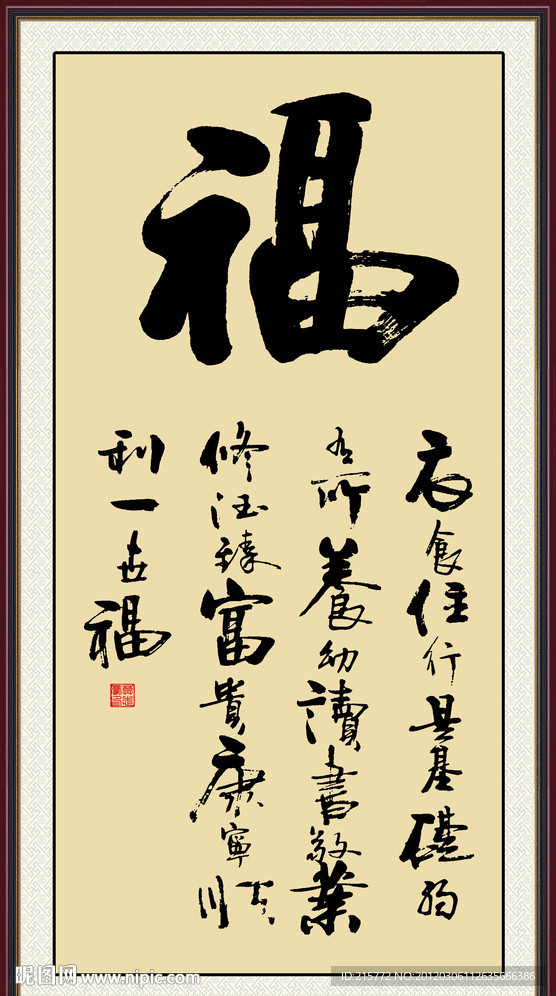 福
衣食住行具基礎
所養幼讀書敬業
修臻富貴康寧順
利一世福
昵图网 www.nipic.com
ID:215772 NO:20120306112635666386